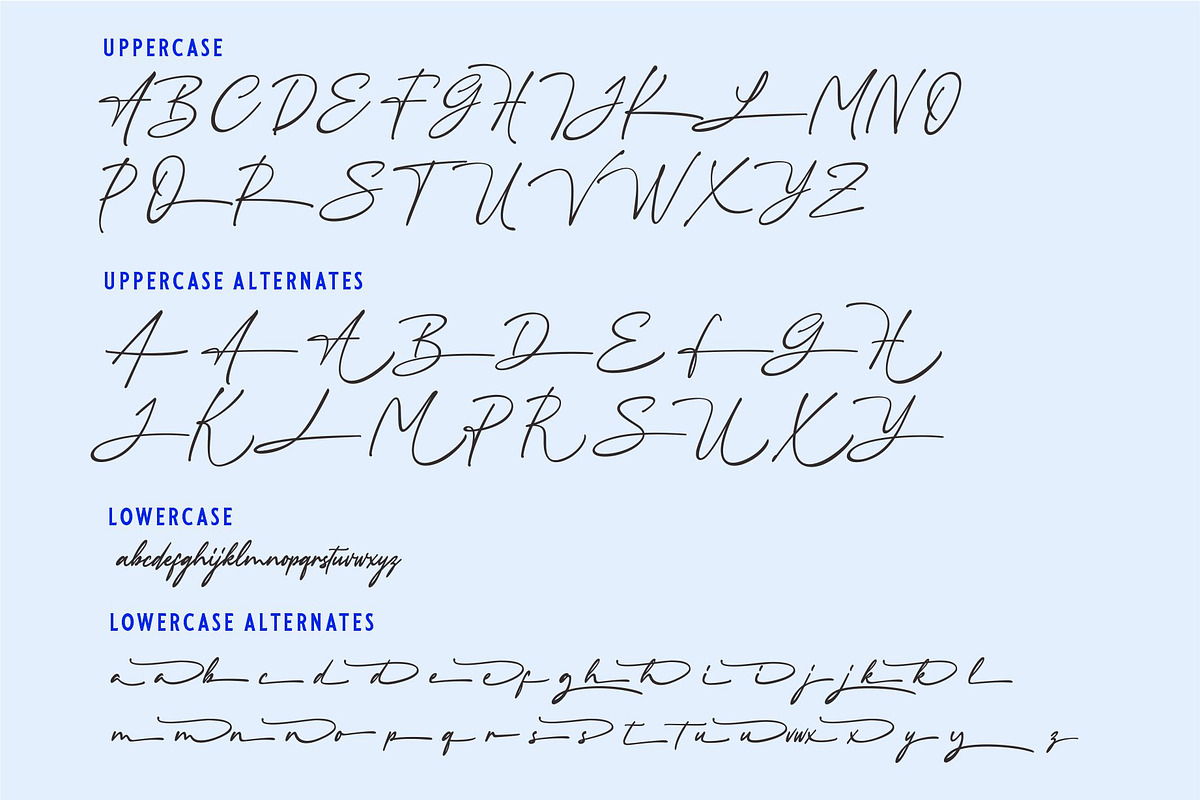 UPPERCASE
ABCDEFGHIJKLMNO
PQRSTUVWXYZ
UPPERCASE ALTERNATES
AAABDEfGH
JKLMPRSUXY
LOWERCASE
abcdefghijklmnopqrstuvwxyz
LOWERCASE ALTERNATES
aabcddeefghhiijjkkl
mmnnopqrsstTuuvwxxyyz